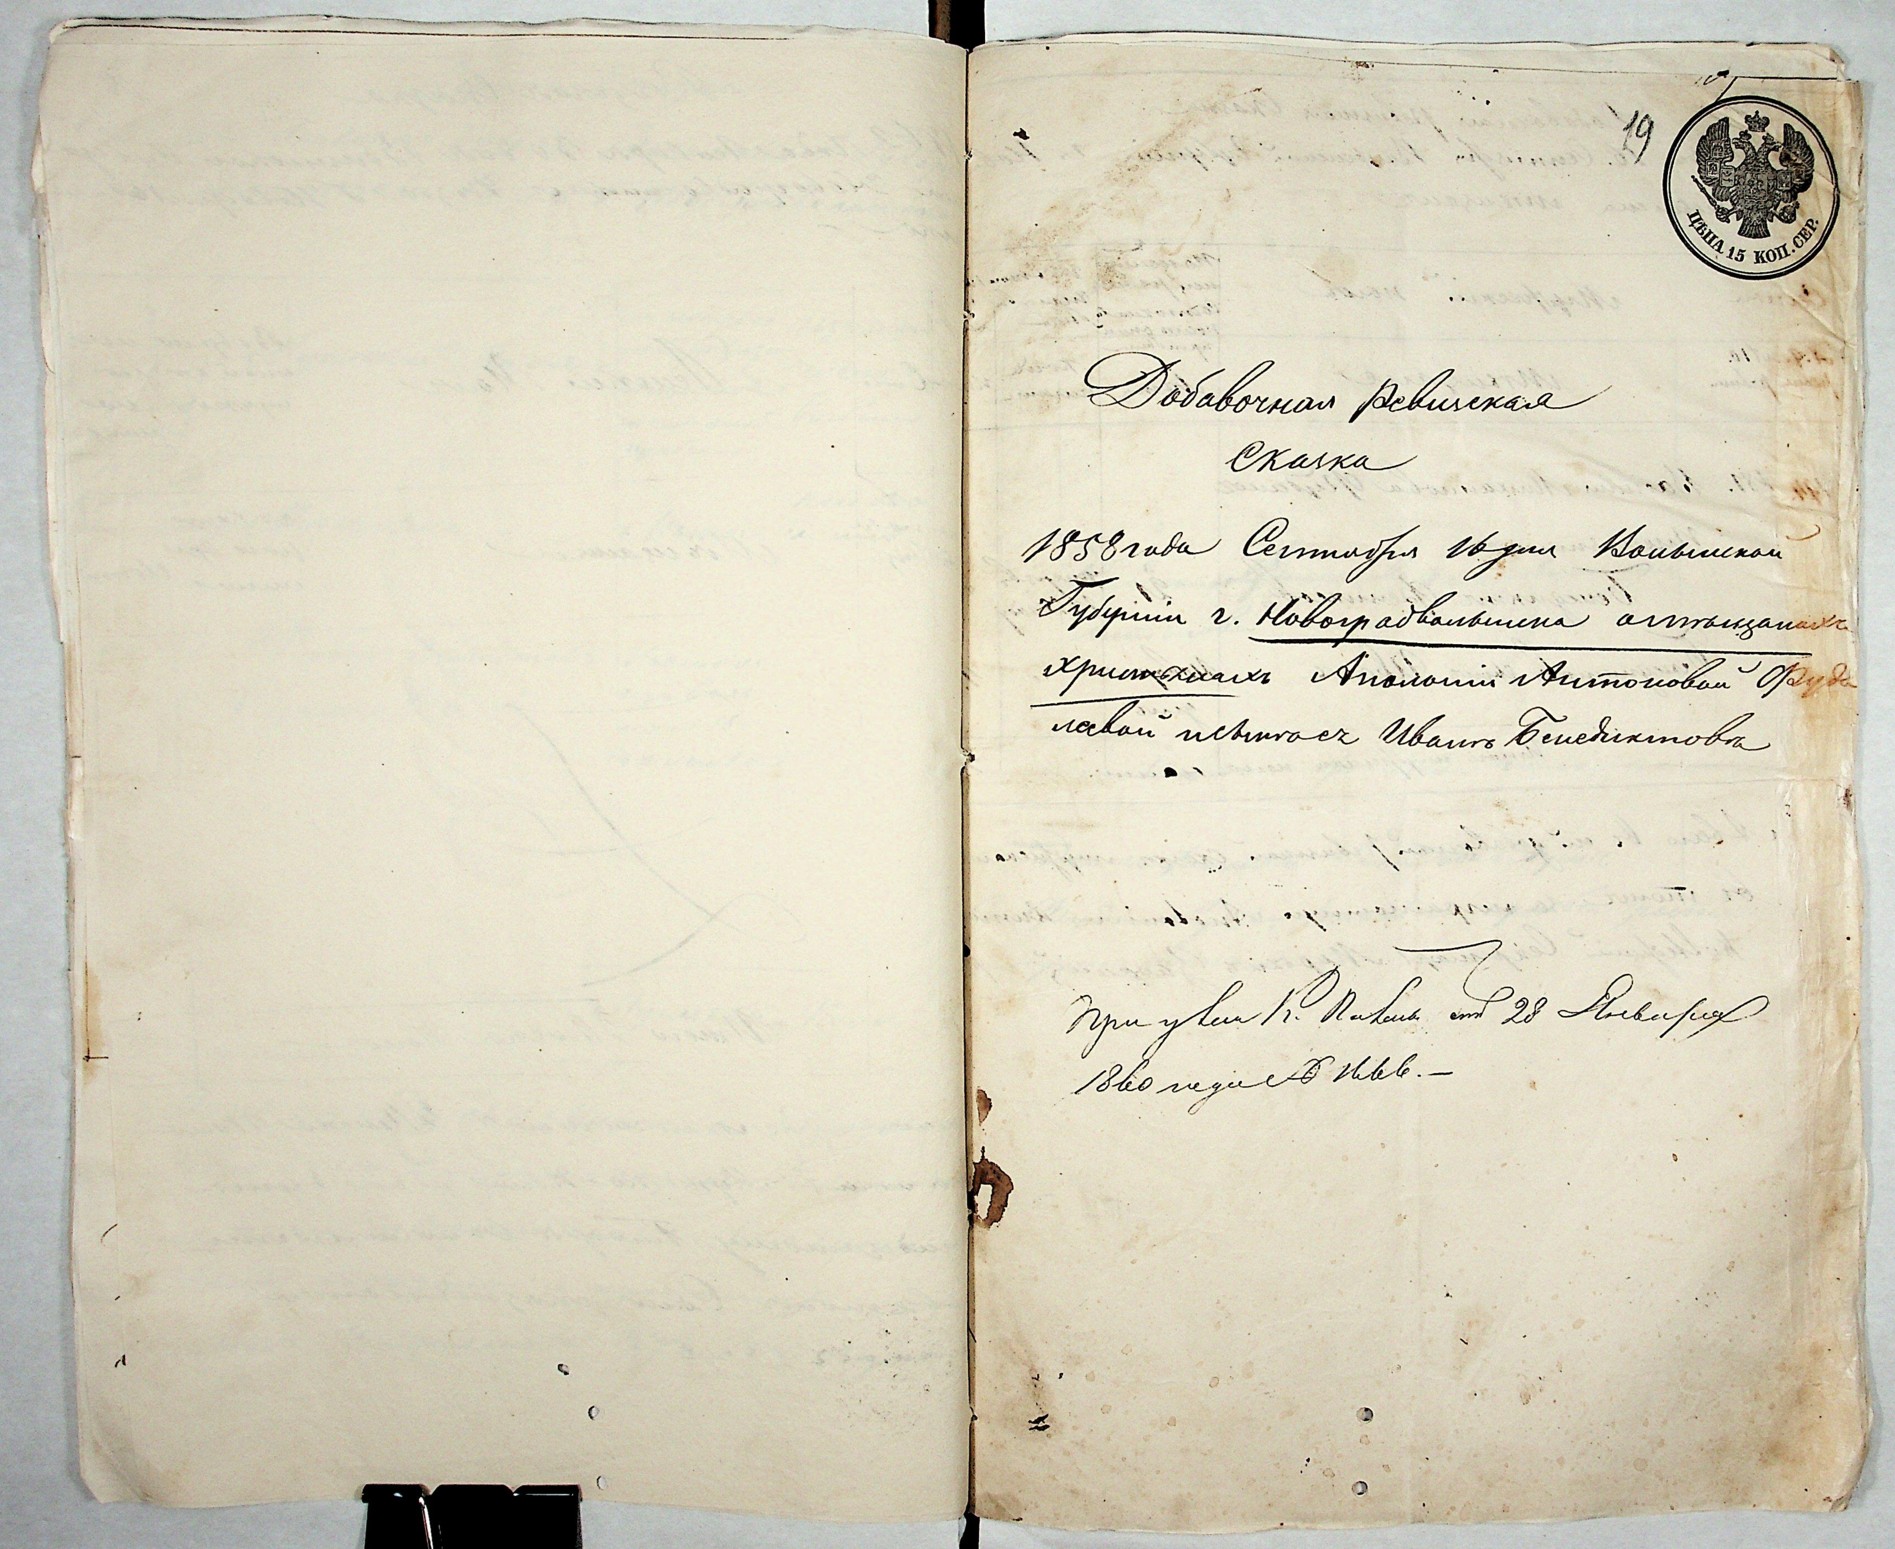 19
ЦѢНА 15 КОП. СЕР.
Добавочная ревизская
сказка
1858 года Сентября 16 дня Волынской
Губерніи г. Новоградволынска о мѣщанахъ
христіянахъ Аполоніи Антоновой Руда
левой и сынѣ ее Иванѣ Бенедиктовѣ
При указѣ К. Палаты отъ 28 Января
1860 года № 1666.—